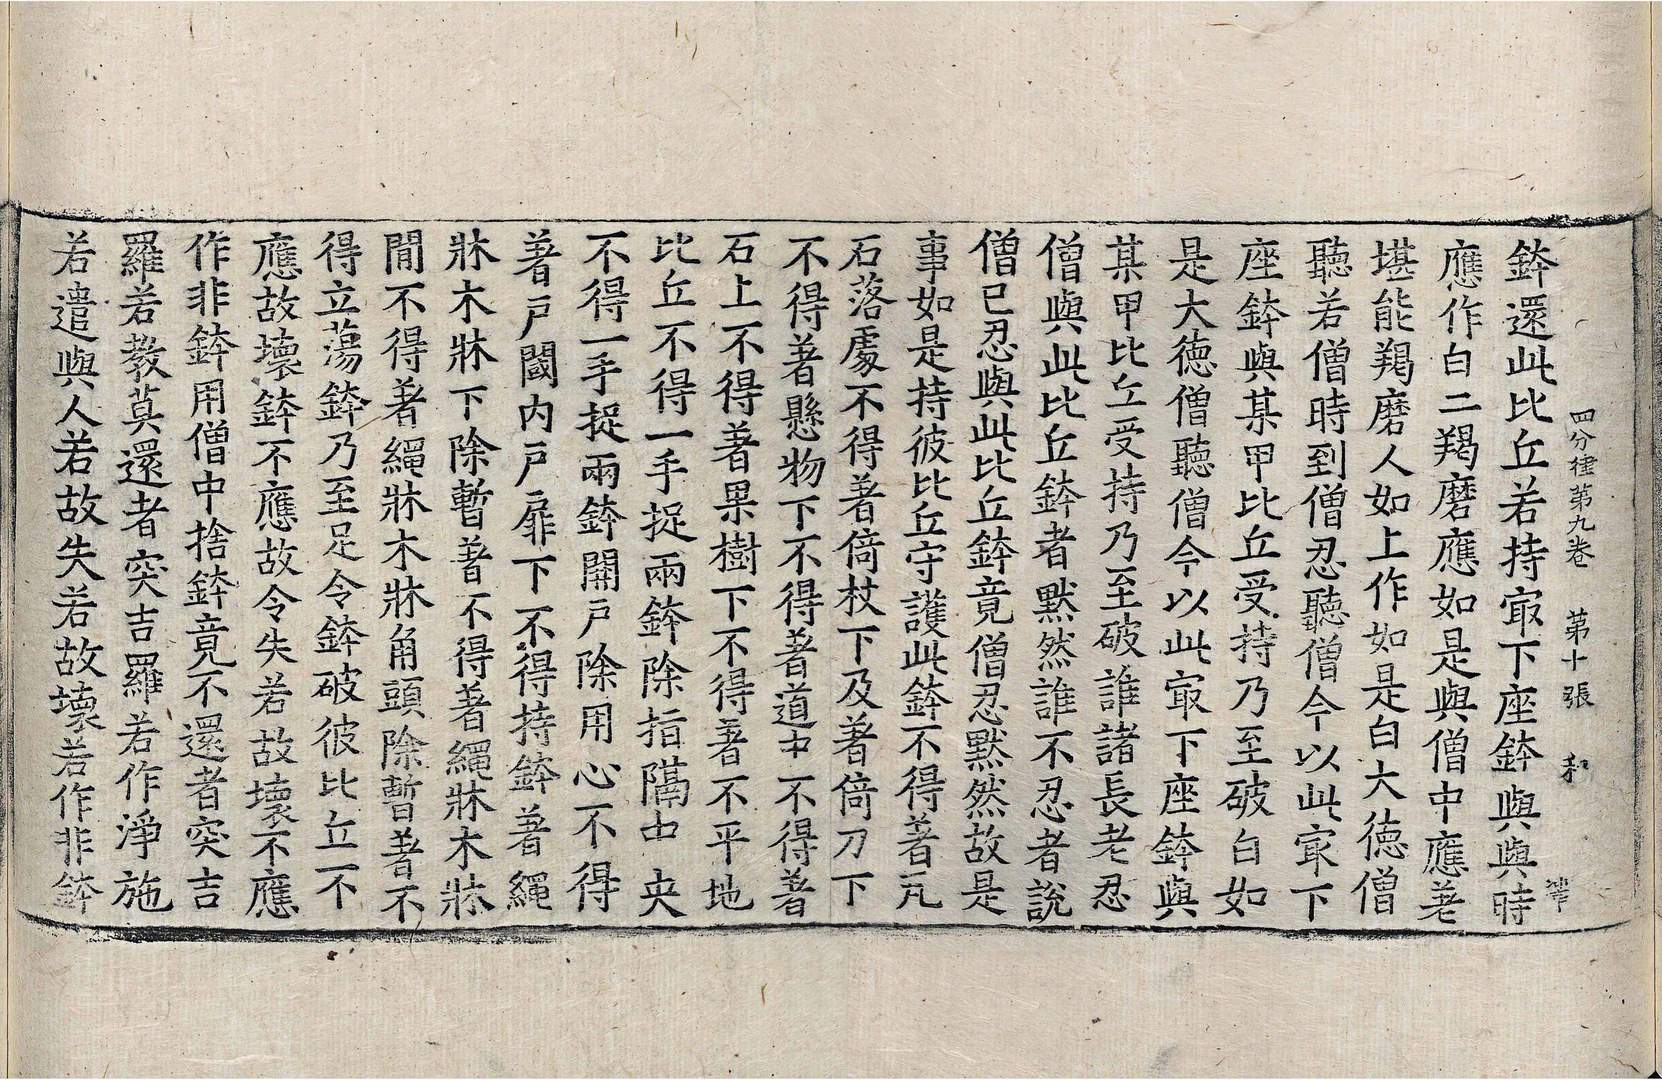 四分律第九卷 第十張 和
鉢還此比丘若持㝡下座鉢與與時
應作白二羯磨應如是與僧中應差
堪能羯磨人如上作如是白大德僧
聽若僧時到僧忍聽僧今以此㝡下
座鉢與某甲比丘受持乃至破白如
是大德僧聽僧今以此㝡下座鉢與
某甲比丘受持乃至破誰諸長老忍
僧與此比丘鉢者默然誰不忍者說
僧已忍與此比丘鉢竟僧忍默然故是
事如是持彼比丘守護此鉢不得著瓦
石落處不得著倚杖下及著倚刀下
不得著懸物下不得著道中不得著
石上不得著果樹下不得著不平地
比丘不得一手捉兩鉢除指隔中央
不得一手捉兩鉢開戶除用心不得
著戶閾內戶扉下不得持鉢著繩
牀木牀下除暫著不得著繩牀木牀
間不得著繩牀木牀角頭除暫著不
得立蕩鉢乃至足令鉢破彼比丘不
應故壞鉢不應故令失若故壞不應
作非鉢用僧中捨鉢竟不還者突吉
羅若教莫還者突吉羅若作淨施
若遣與人若故失若故壞若作非鉢